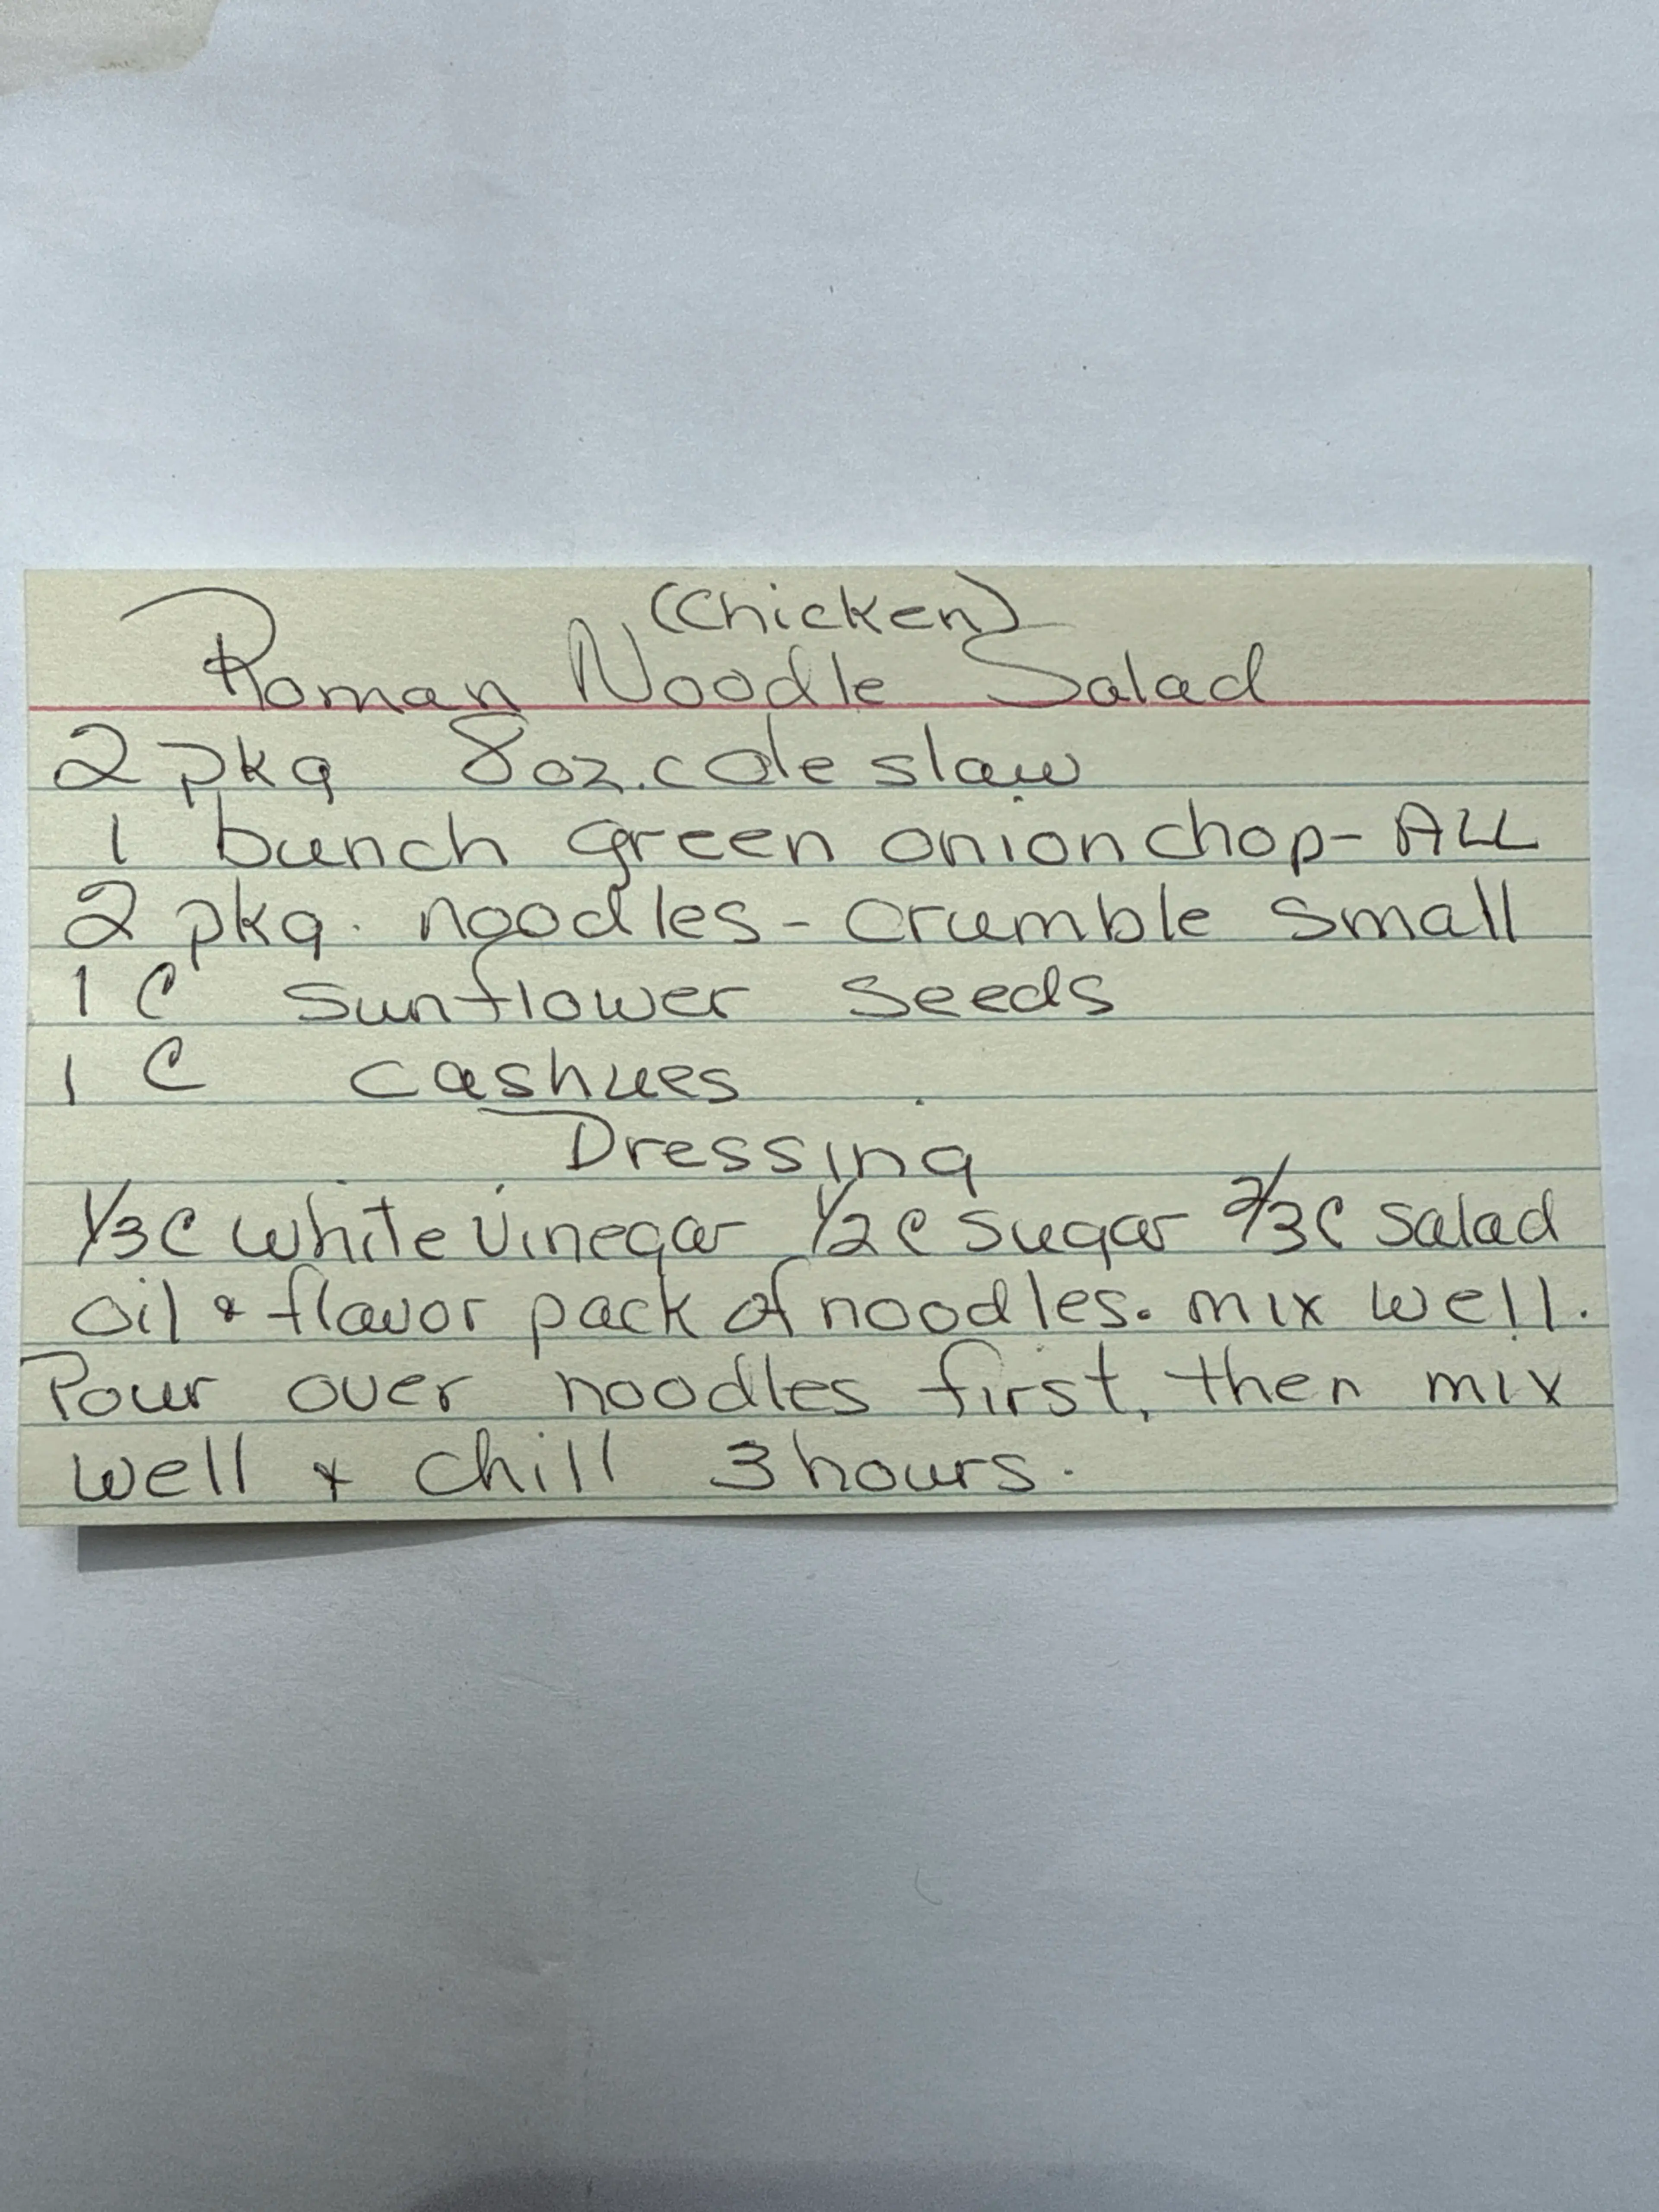 (Chicken)
Roman Noodle Salad
2 pkg 8oz. cole slaw
1 bunch green onion chop - ALL
2 pkg. noodles - crumble small
1 C sunflower seeds
1 C cashues
Dressing
1/3 C white vinegar 1/2 C sugar 2/3 C salad
oil & flavor pack of noodles. mix well.
Pour over noodles first, then mix
well & chill 3 hours.